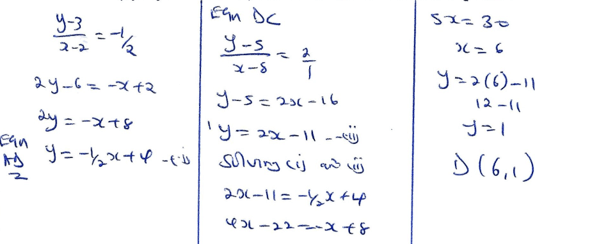 y-3/x-2 = -1/2
2y-6 = -x+2
2y = -x+8
Eqn AD y = -1/2x+4 -(i)
Eqn DC
y-5/x-8 = 2/1
y-5 = 2x-16
y = 2x-11 --(ii)
Solving (i) and (ii)
2x-11 = -1/2x+4
4x-22 = -x+8
5x = 30
x = 6
y = 2(6)-11
12-11
y = 1
D(6,1)